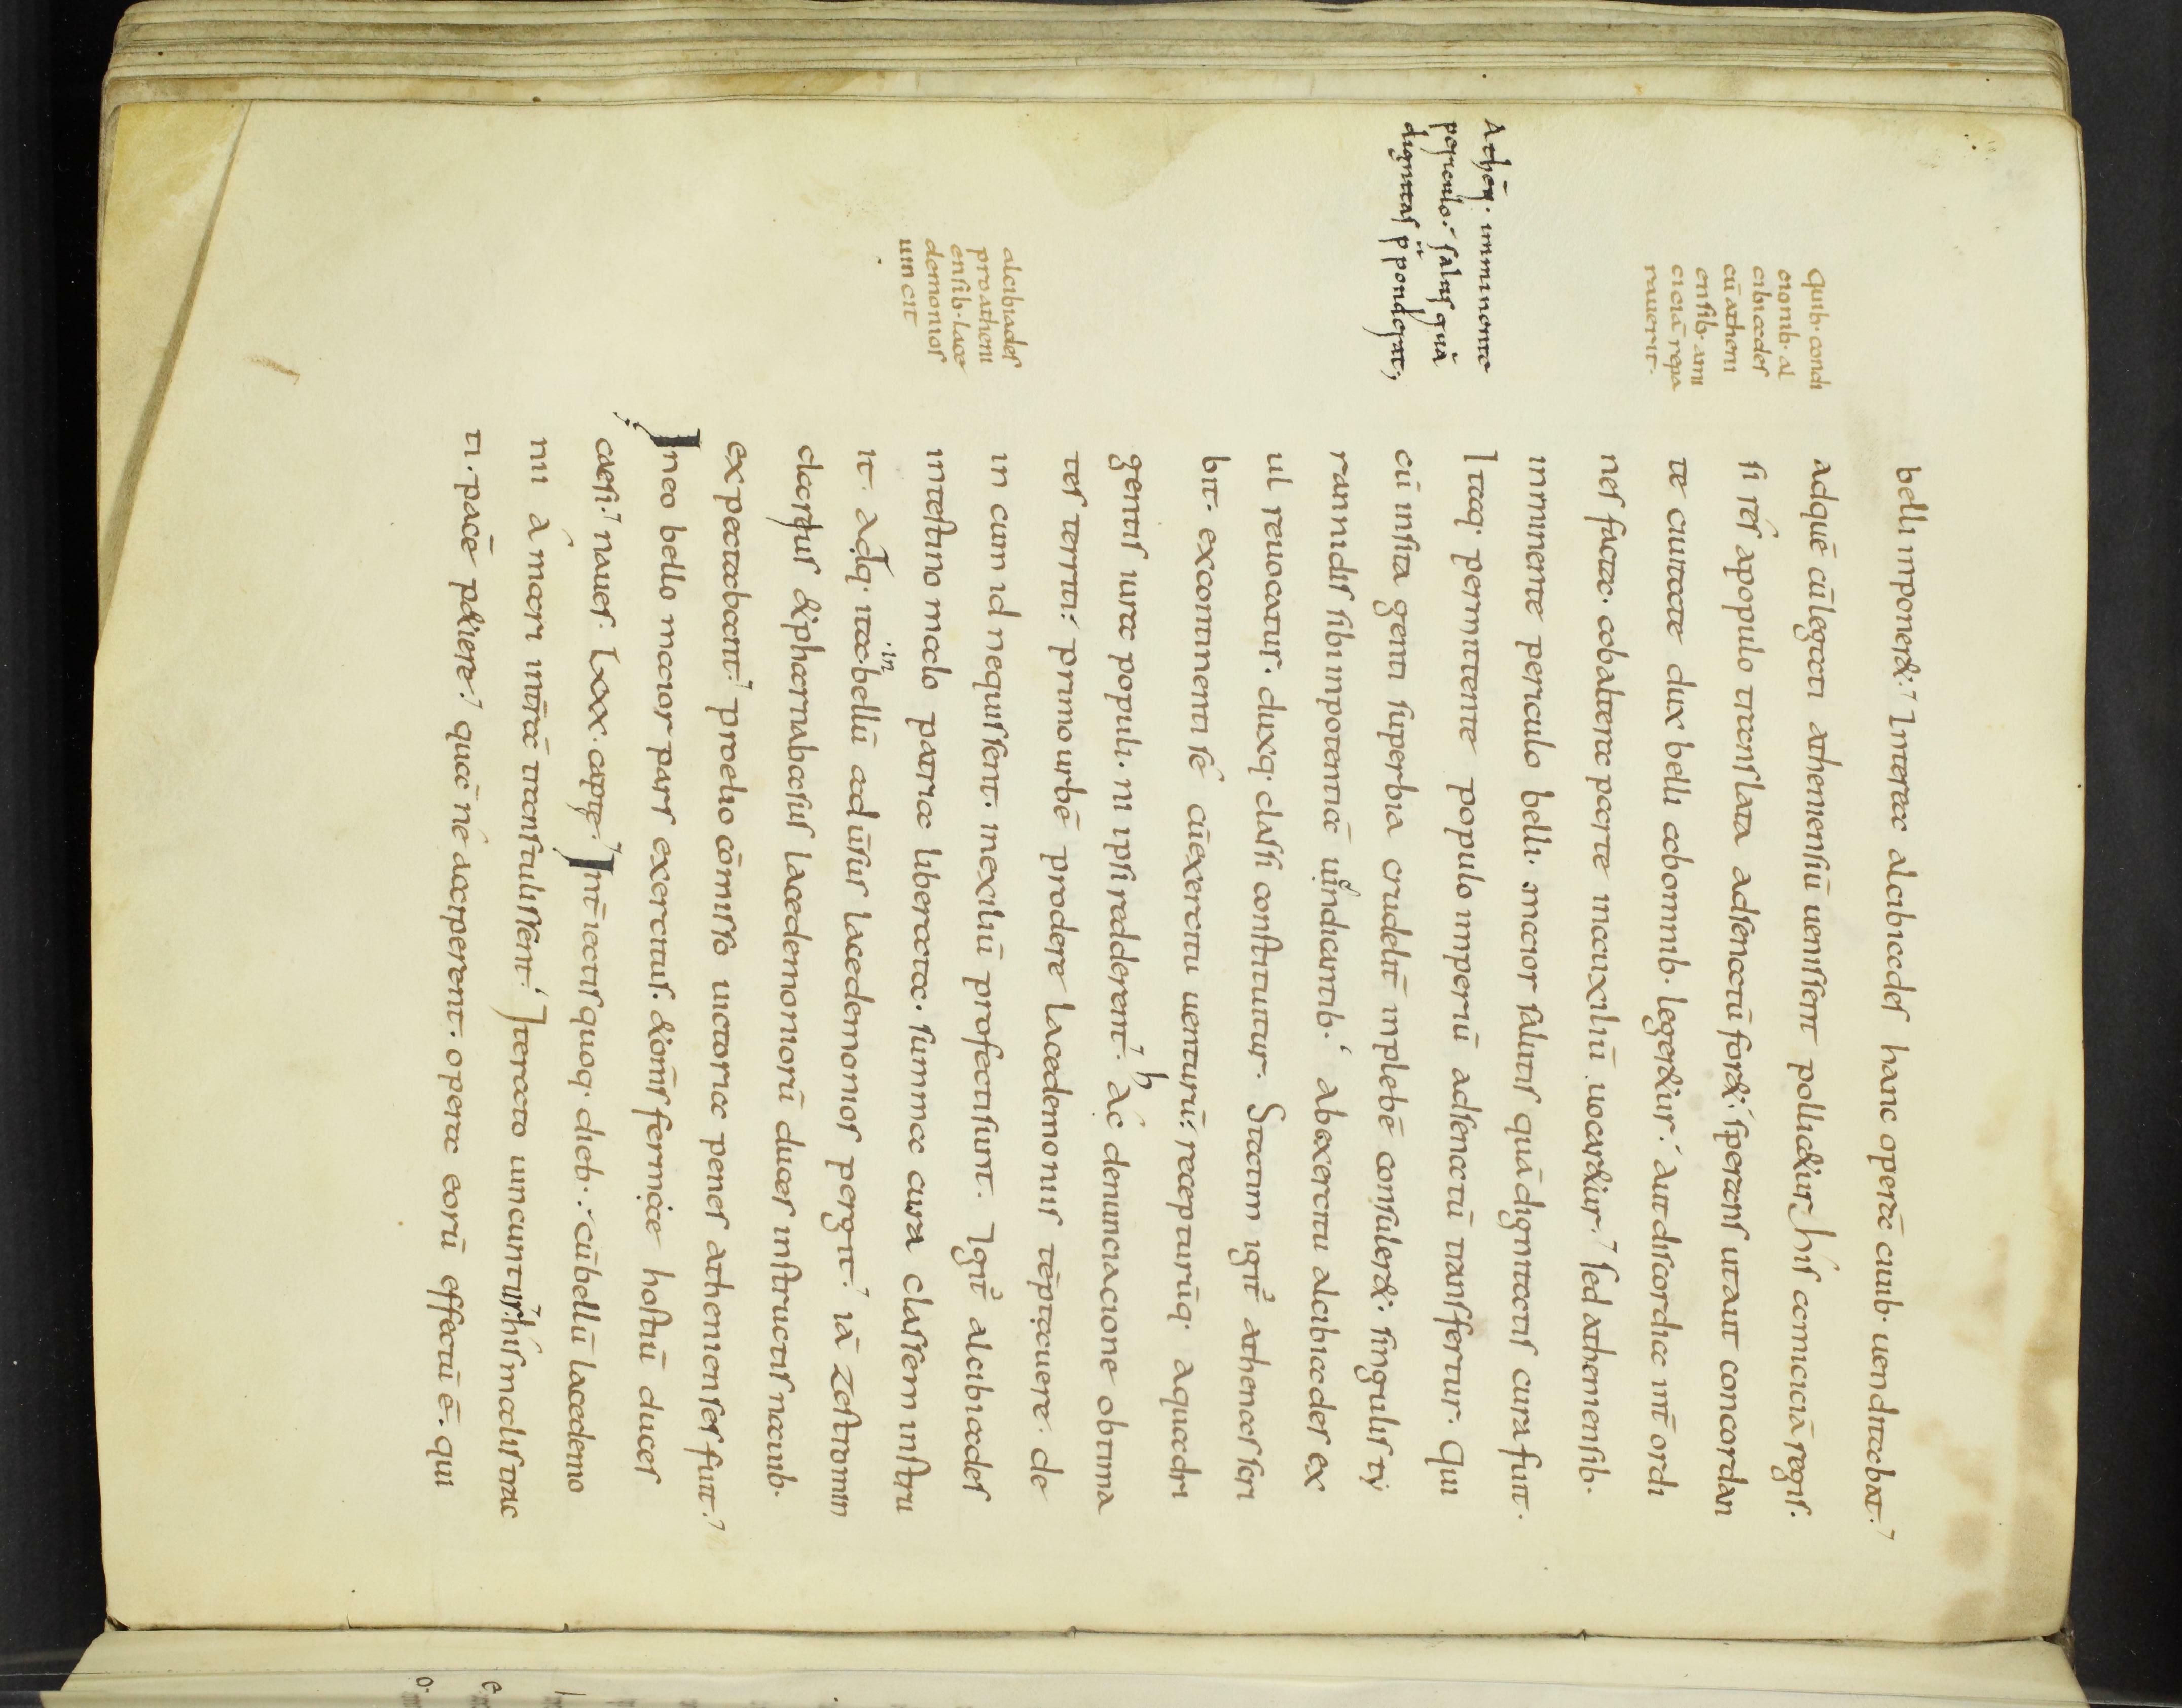 belli inponer&. Interea alcibiades hanc operā ciuib. uenditabat.
adquē cū legati atheniensiū uenissent pollic&ur his amiciciā regis.
si rés apopulo translata adsenatū for&. sperans utaut concordan
te ciuitate dux belli abomnib. leger&ur. aut discordia int̄ ordi
nes facta. abaltera parte inauxiliū uocar&ur. sed atheniensib.
inminente periculo belli. maior salutis quā dignitatis cura fuit.
Itaq. permittente populo imperiū adsenatū transfertur. qui
cū insita genti superbia crudelit̄ inplebē consuler&. singulis ty
rannidis sibi inpotentiā uindicantib. abexercitu alcibiades ex
ul reuocatur. duxq. classi constituitur. Statim igit̄ athenas scri
bit. excontinenti sé cūexercitu uenturū. recepturūq. aquadri
gentis iura populi. ni ipsi redderent. hác denunciacione obtima
tes territi. primo urbē prodere lacedemoniis tēptauere. de
in cum id nequissent. inexiliū profecti sunt. Igit̄ alcibiades
intestino malo patria liberata. summa cura classem instru
it. adq. ita .in. bellū aduīsus lacedemonios pergit. iā zestromin
darus &pharnabasus lacedemoniorū duces instructis nauib.
expectabant. proelio cōmisso uictoria penes athenienses fuit.
Ineo bello maior pars exercitus. &om̄s fermæ hostiū duces
caesi. naues. Lxxx. captę. Int̄ iectis quoq. dieb. cūbellū lacedemo
nii á mari int̄rā transtulissent. Iterato uincuntur. his malis frac
ti. pacē p&iere. quā né acciperent. opera eorū effectū ē. qui
quib. condi
cionib. al
cibiades
cū atheni
ensib. ami
ciciā repa
rauerit.
Athēn̄. imminente
periculo. salus quā
dignitas pponderat;
alcibiades
pro atheni
ensib. lace
demonios
uincit